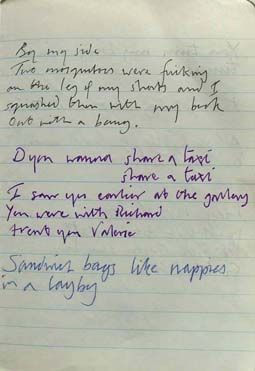 By my side
Two mosquitoes were fucking
on the leg of my shorts and I
squashed them with my book
Out with a bang.
D'you wanna share a taxi
share a taxi
I saw you earlier at the gallery
You were with Richard
Aren't you Valerie
Sandwich bags like nappies
in a layby